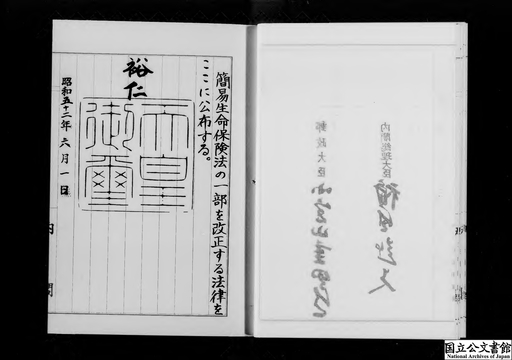 簡易生命保険法の一部を改正する法律を
ここに公布する。
裕仁
天皇御璽
昭和五十二年六月一日
内閣
内閣総理大臣
郵政大臣
国立公文書館
National Archives of Japan